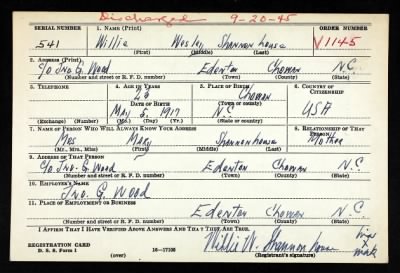 Discharged 9-20-45
SERIAL NUMBER 1. NAME (Print) ORDER NUMBER
541 Willie Wesley Shannonhouse V1145
(First) (Middle) (Last)
2. ADDRESS (Print)
c/o Jno. G. Wood Edenton Chowan N.C.
(Number and street or R. F. D. number) (Town) (County) (State)
3. TELEPHONE 4. AGE IN YEARS 5. PLACE OF BIRTH 6. COUNTRY OF CITIZENSHIP
23 Chowan
DATE OF BIRTH (Town or county)
May 5, 1917 N.C. USA
(Exchange) (Number) (Mo.) (Day) (Yr.) (State or country)
7. NAME OF PERSON WHO WILL ALWAYS KNOW YOUR ADDRESS 8. RELATIONSHIP OF THAT PERSON
Mrs Mary Shannonhouse Mother
(Mr., Mrs., Miss) (First) (Middle) (Last)
9. ADDRESS OF THAT PERSON
c/o Jno. G. Wood Edenton Chowan N.C.
(Number and street or R. F. D. number) (Town) (County) (State)
10. EMPLOYER'S NAME
Jno. G. Wood
11. PLACE OF EMPLOYMENT OR BUSINESS
Edenton Chowan N.C.
(Number and street or R. F. D. number) (Town) (County) (State)
I AFFIRM THAT I HAVE VERIFIED ABOVE ANSWERS AND THAT THEY ARE TRUE.
REGISTRATION CARD Willie W. Shannonhouse his x mark
D. S. S. Form 1 16—17105 (Registrant's signature)
(over)